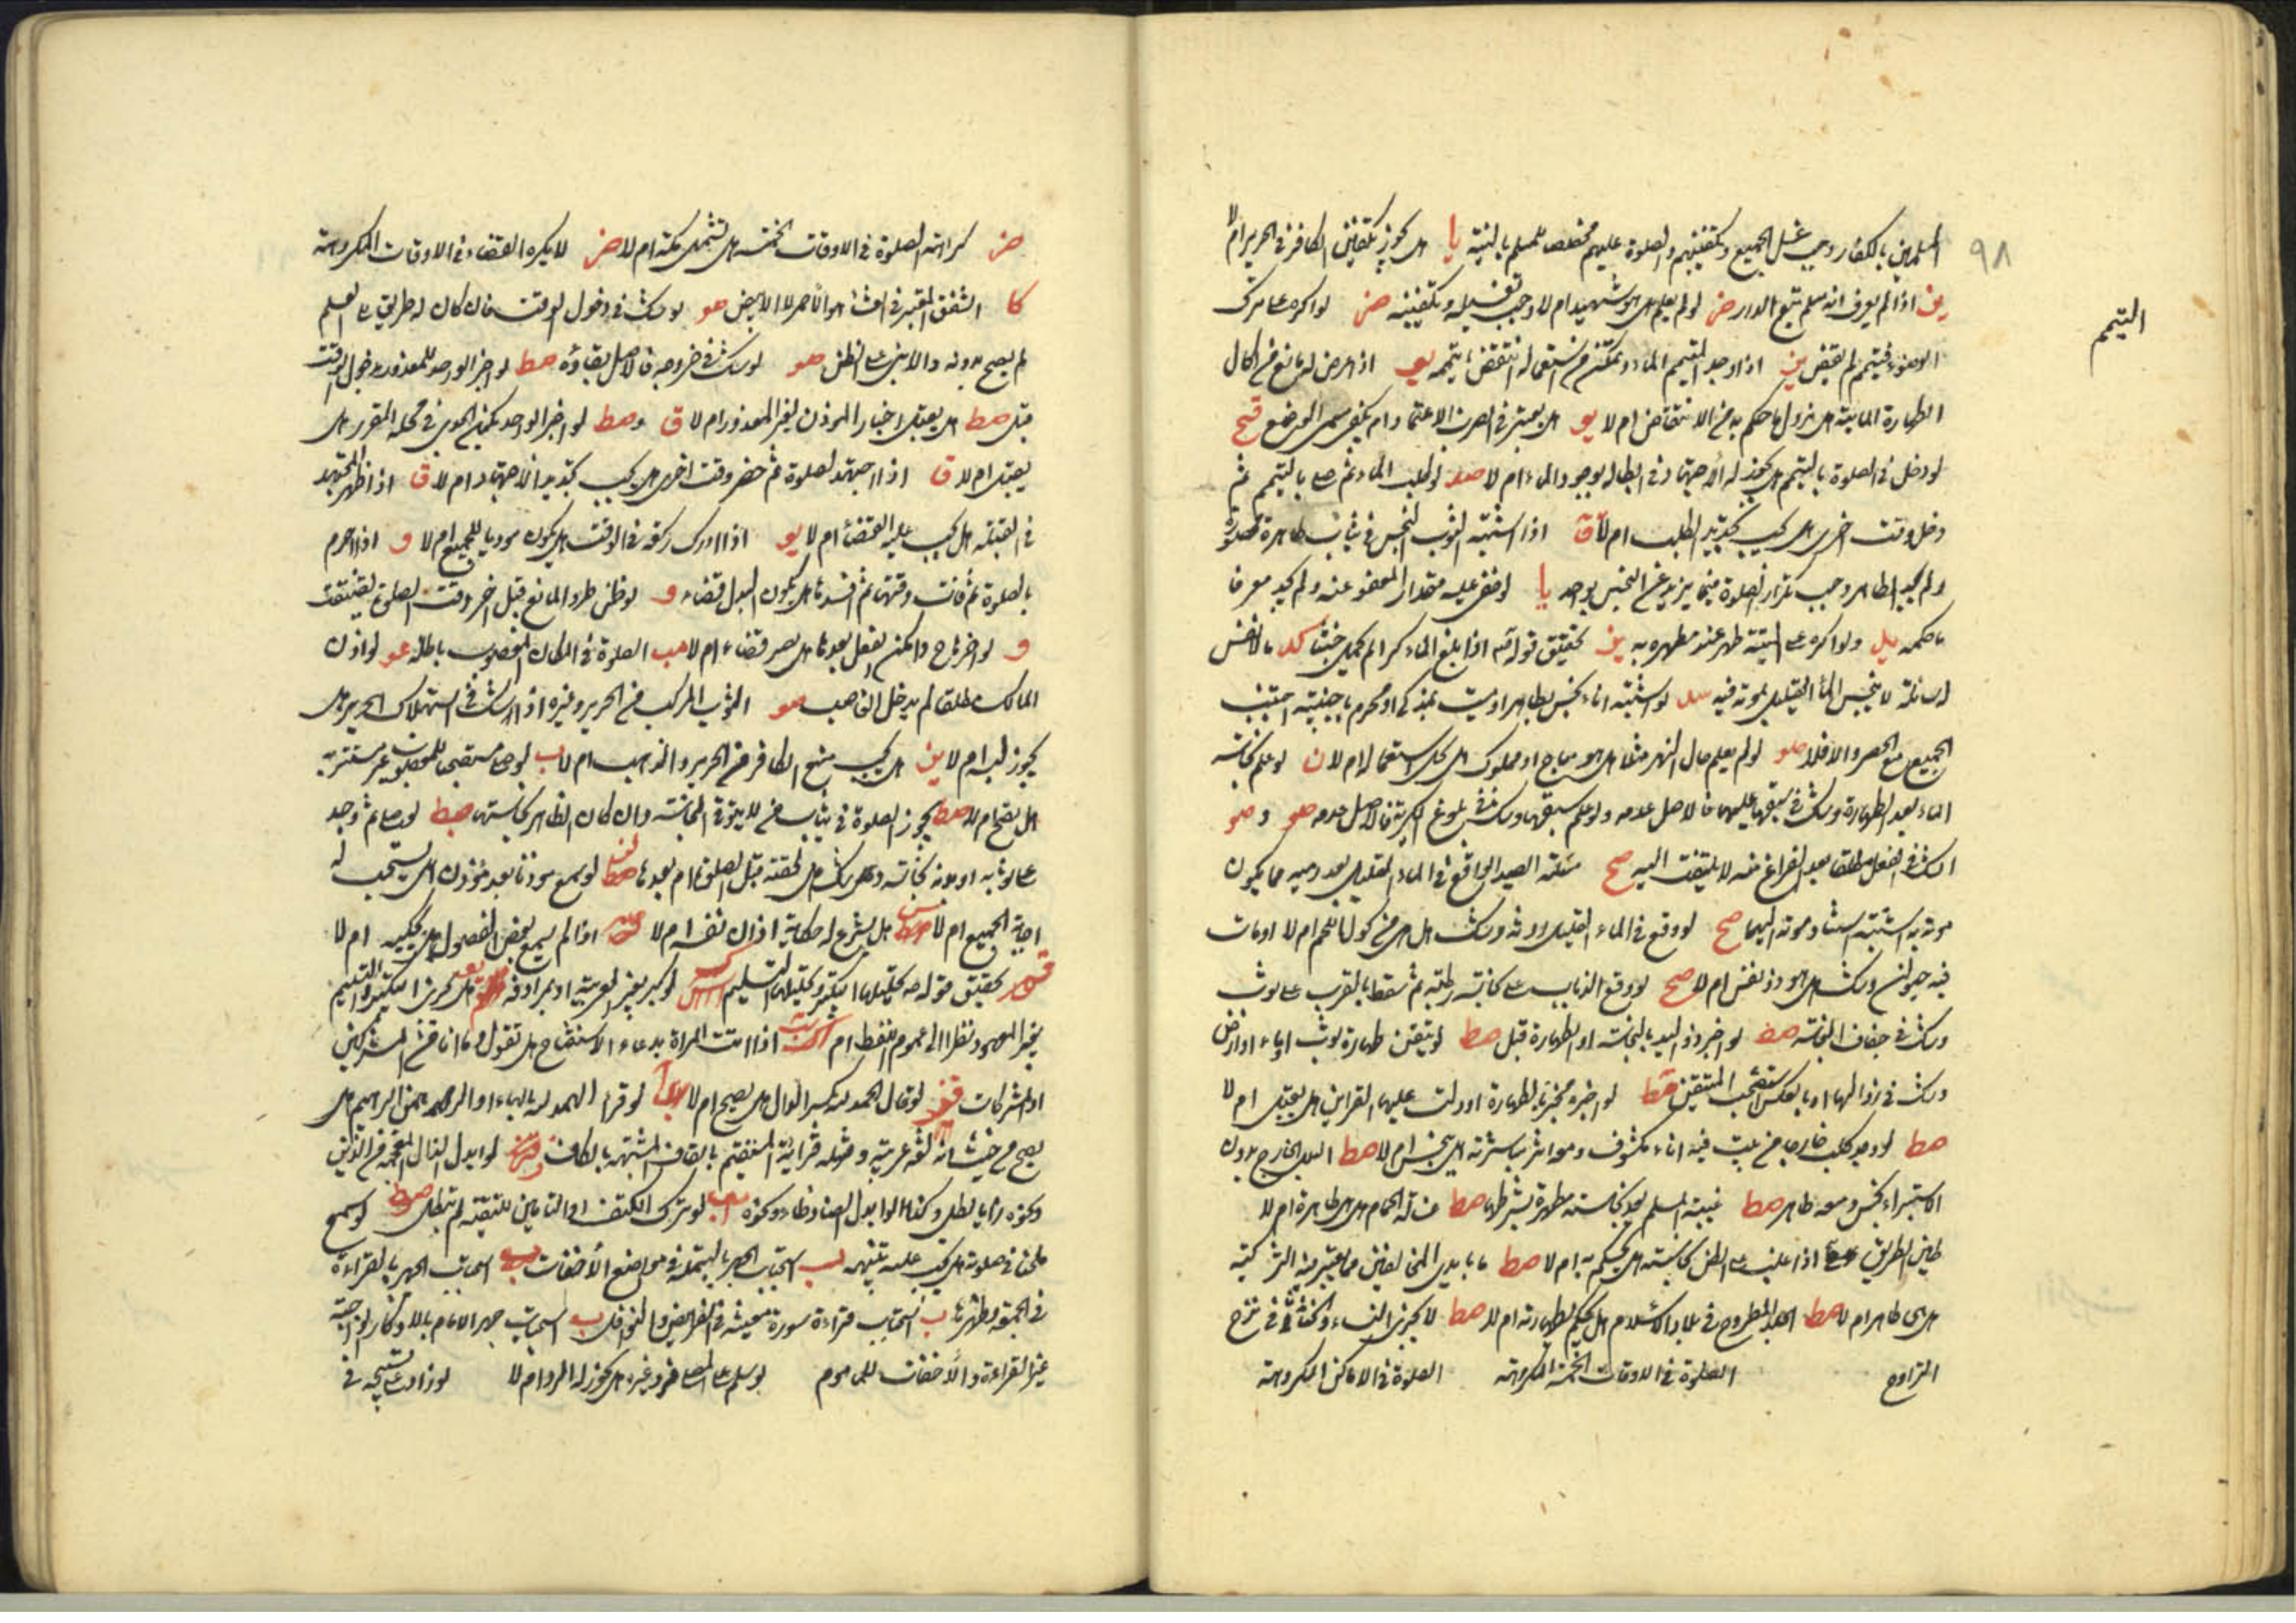 ٩٨
التيمم
المسلمين بالكفار وجب غسل الجميع وتكفينهم والصلوة عليهم مخصصا للمسلم بالنية يا هل يجوز تكفين الكافر في الحرير ام لا
ين اذا لم يعرف انه مسلم تبع الدار ض لو لم يعلم هل هو شهيد ام لا وجب تغسيله وتكفينه ض لو اكره على ترك
الوضوء فتيمم لم يقض ين اذا وجد المتيمم الماء وتمكن من استعماله انتقض تيممه يو اذا عرض له مانع من اكمال
الطهارة المائية هل يزول ما حكم به من الانتقاض ام لا يو هل يعتبر في الضرب الاعتماد ام يكفي مسمى الوضع قيح
لو دخل في الصلوة بالتيمم هل يجوز له الاجتهاد في ابطاله بوجود الماء ام لا صد لو طلب الماء ثم صلى بالتيمم ثم
دخل وقت اخرى هل يجب تجديد الطلب ام لا ق اذا اشتبه الثوب النجس في ثياب طاهرة محصورة
ولم يجد الطاهر وجب تكرار الصلوة فيما يزيد عن النجس بواحد يا لو خفى عليه مقدار المعفو عنه ولم يجد معرفا
ما حكمه يل ولو اكره على الميتة طهر عند مطهره به يز تحقيق قوله اذا بلغ الماء كرا لم يحمل خبثا كد ما لا نفس
له سائلة لا ينجس الماء القليل بموته فيه سد لو اشتبه اناء نجس بطاهر او ميت بمذكى او محرم باجنبية اجتنب
الجميع مع الحصر والا فلا صو لو لم يعلم حال النهر مثلا هل هو مباح او مملوك هل يحل استعماله ام لا ن لو علم نجاسة
الماء بعد الطهارة وشك في سبقها عليها فالاصل عدمه ولو علم سبقها وشك في بلوغ الكرية فالاصل عدمه صو و صو
الشك في الفعل مطلقا بعد الفراغ منه لا يلتفت اليه صح مسئلة الصيد الواقع في الماء القليل بعد رميه بما يمكن
موته به اشتبه استناد موته اليهما صح لو وقع في الماء القليل روثه وشك هل هي من مأكول اللحم ام لا او مات
فيه حيوان وشك هل هو ذو نفس ام لا صح لو وقع الذباب على نجاسة رطبة ثم سقط بالقرب على ثوب
وشك في جفاف النجاسة صط لو اخبر ذو اليد بالنجاسة او الطهارة قبل صط لو تيقن طهارة ثوب او ماء او ارض
وشك في زوالها او بالعكس استصحب المتيقن صط لو اخبره مخبر بالطهارة او دلت عليها القراين هل يقبل ام لا
صط لو وجد كلب خارجا من بيت فيه اناء مكشوف ومعه اثر مباشرته هل ينجس ام لا صط البلل الخارج بدون
الاستبراء نجس ومعه طاهر صط غيبة المسلم بعد نجاسته مطهرة بشرطها صط غسالة الحمام هل هي طاهرة ام لا
طين الطريق اذا غلب على الظن نجاسته هل يحكم به ام لا صط ما بايدي المخالفين مما يعتبر فيه التذكية
هل هي طاهر ام لا صط الجلد المطروح في بلاد الاسلام هل يحكم بطهارته ام لا صط لا يجزي النساء والخناثى في نزح
التراوح الصلوة في الاوقات الخمسة المكروهة الصلوة في الاماكن المكروهة
ض كراهة الصلوة في الاوقات الخمسة هل تشمل مكة ام لا ض لا يكره القضاء في الاوقات المكروهة
كا الشفق المعتبر في العشاء هو الاحمر لا الابيض صو لو شك في دخول الوقت فان كان له طريق الى العلم
لم يصح بدونه والا بنى على الظن صو لو شك في خروجه فالاصل بقاؤه صط لو اخبر الواحد للمعذور بدخول الوقت
قبل صط هل يقبل اخبار المؤذن لغير المعذور ام لا ق وصط لو اخبر الواحد بكون الجدي في محله المقرر هل
يقبل ام لا ق اذا اجتهد لصلوة ثم حضر وقت اخرى هل يجب تجديد الاجتهاد ام لا ق اذا ظهر للمجتهد
في القبلة هل يجب عليه القضاء ام لا يو اذا ادرك ركعة في الوقت هل يكون موديا للجميع ام لا و اذا احرم
بالصلوة ثم فات وقتها ثم افسدها هل يكون البدل قضاء و لو ظن طرو المانع قبل اخر وقت الصلوة تضيقت
و لو اخرها ح وامكن الفعل بعدها هل يصير قضاء ام لا مب الصلوة في المكان المغصوب باطلة عو لو اذن
المالك مطلقا لم يدخل الغاصب صو الثوب المركب من الحرير وغيره اذا شك في استهلاك الحرير هل
يجوز لبسه ام لا ين هل يجب منع الكافر من الحرير والذهب ام لا ب لو صلى مستصحبا للمغصوب غير مستتر به
هل يصح ام لا صط يجوز الصلوة في ثياب من لا يتوقى النجاسة وان كان الظاهر نجاستها صط لو صلى ثم وجد
على ثوبه او بدنه نجاسة وشك هل لحقته قبل الصلوة ام بعدها صط لو سمع موذنا بعد موذن هل يستحب له
اجابة الجميع ام لا هل يشرع له حكاية اذان نفسه ام لا اذا لم يسمع بعض الفصول هل يحكيه ام لا
تحقيق قوله ص تحريمها التكبير وتحليلها التسليم لو كبر بغير العربية او بمرادفه هل يجزي التكبير والتسليم
بغير المعهود نظرا الى عموم اللفظ ام اذا اتت المراة بدعاء الاستفتاح هل تقول وما انا من المشركين
او المشركات لو قال الحمد لله بكسر الدال هل يصح ام لا لو قرا الهمد لله بالهاء او الرحمن الرحيم هل
يصح من حيث انه لغة عربية ومثله قراءة المستقيم بالقاف المشبهة بالكاف لو ابدل الذال المعجمة من الذين
ونحوه زايا بطل وكذا لو ابدل الضاد ظاء ونحوه لو ترك الكتف او التامين للتقية لم تبطل صط لو سمع
ملحنا في صلوته هل يجب عليه تنبيهه ب استحباب الجهر بالبسملة في مواضع الاخفات ب استحباب الجهر بالقراءة
في الجمعة وظهرها ب استحباب قراءة سورة معينة في الفرائض والنوافل ب استحباب جهر الامام بالاذكار الواجبة
غير القراءة والاخفات للماموم لو سلم على المصلي فرد غيره هل يجوز له الرد ام لا لو زاد على تسبيحة في